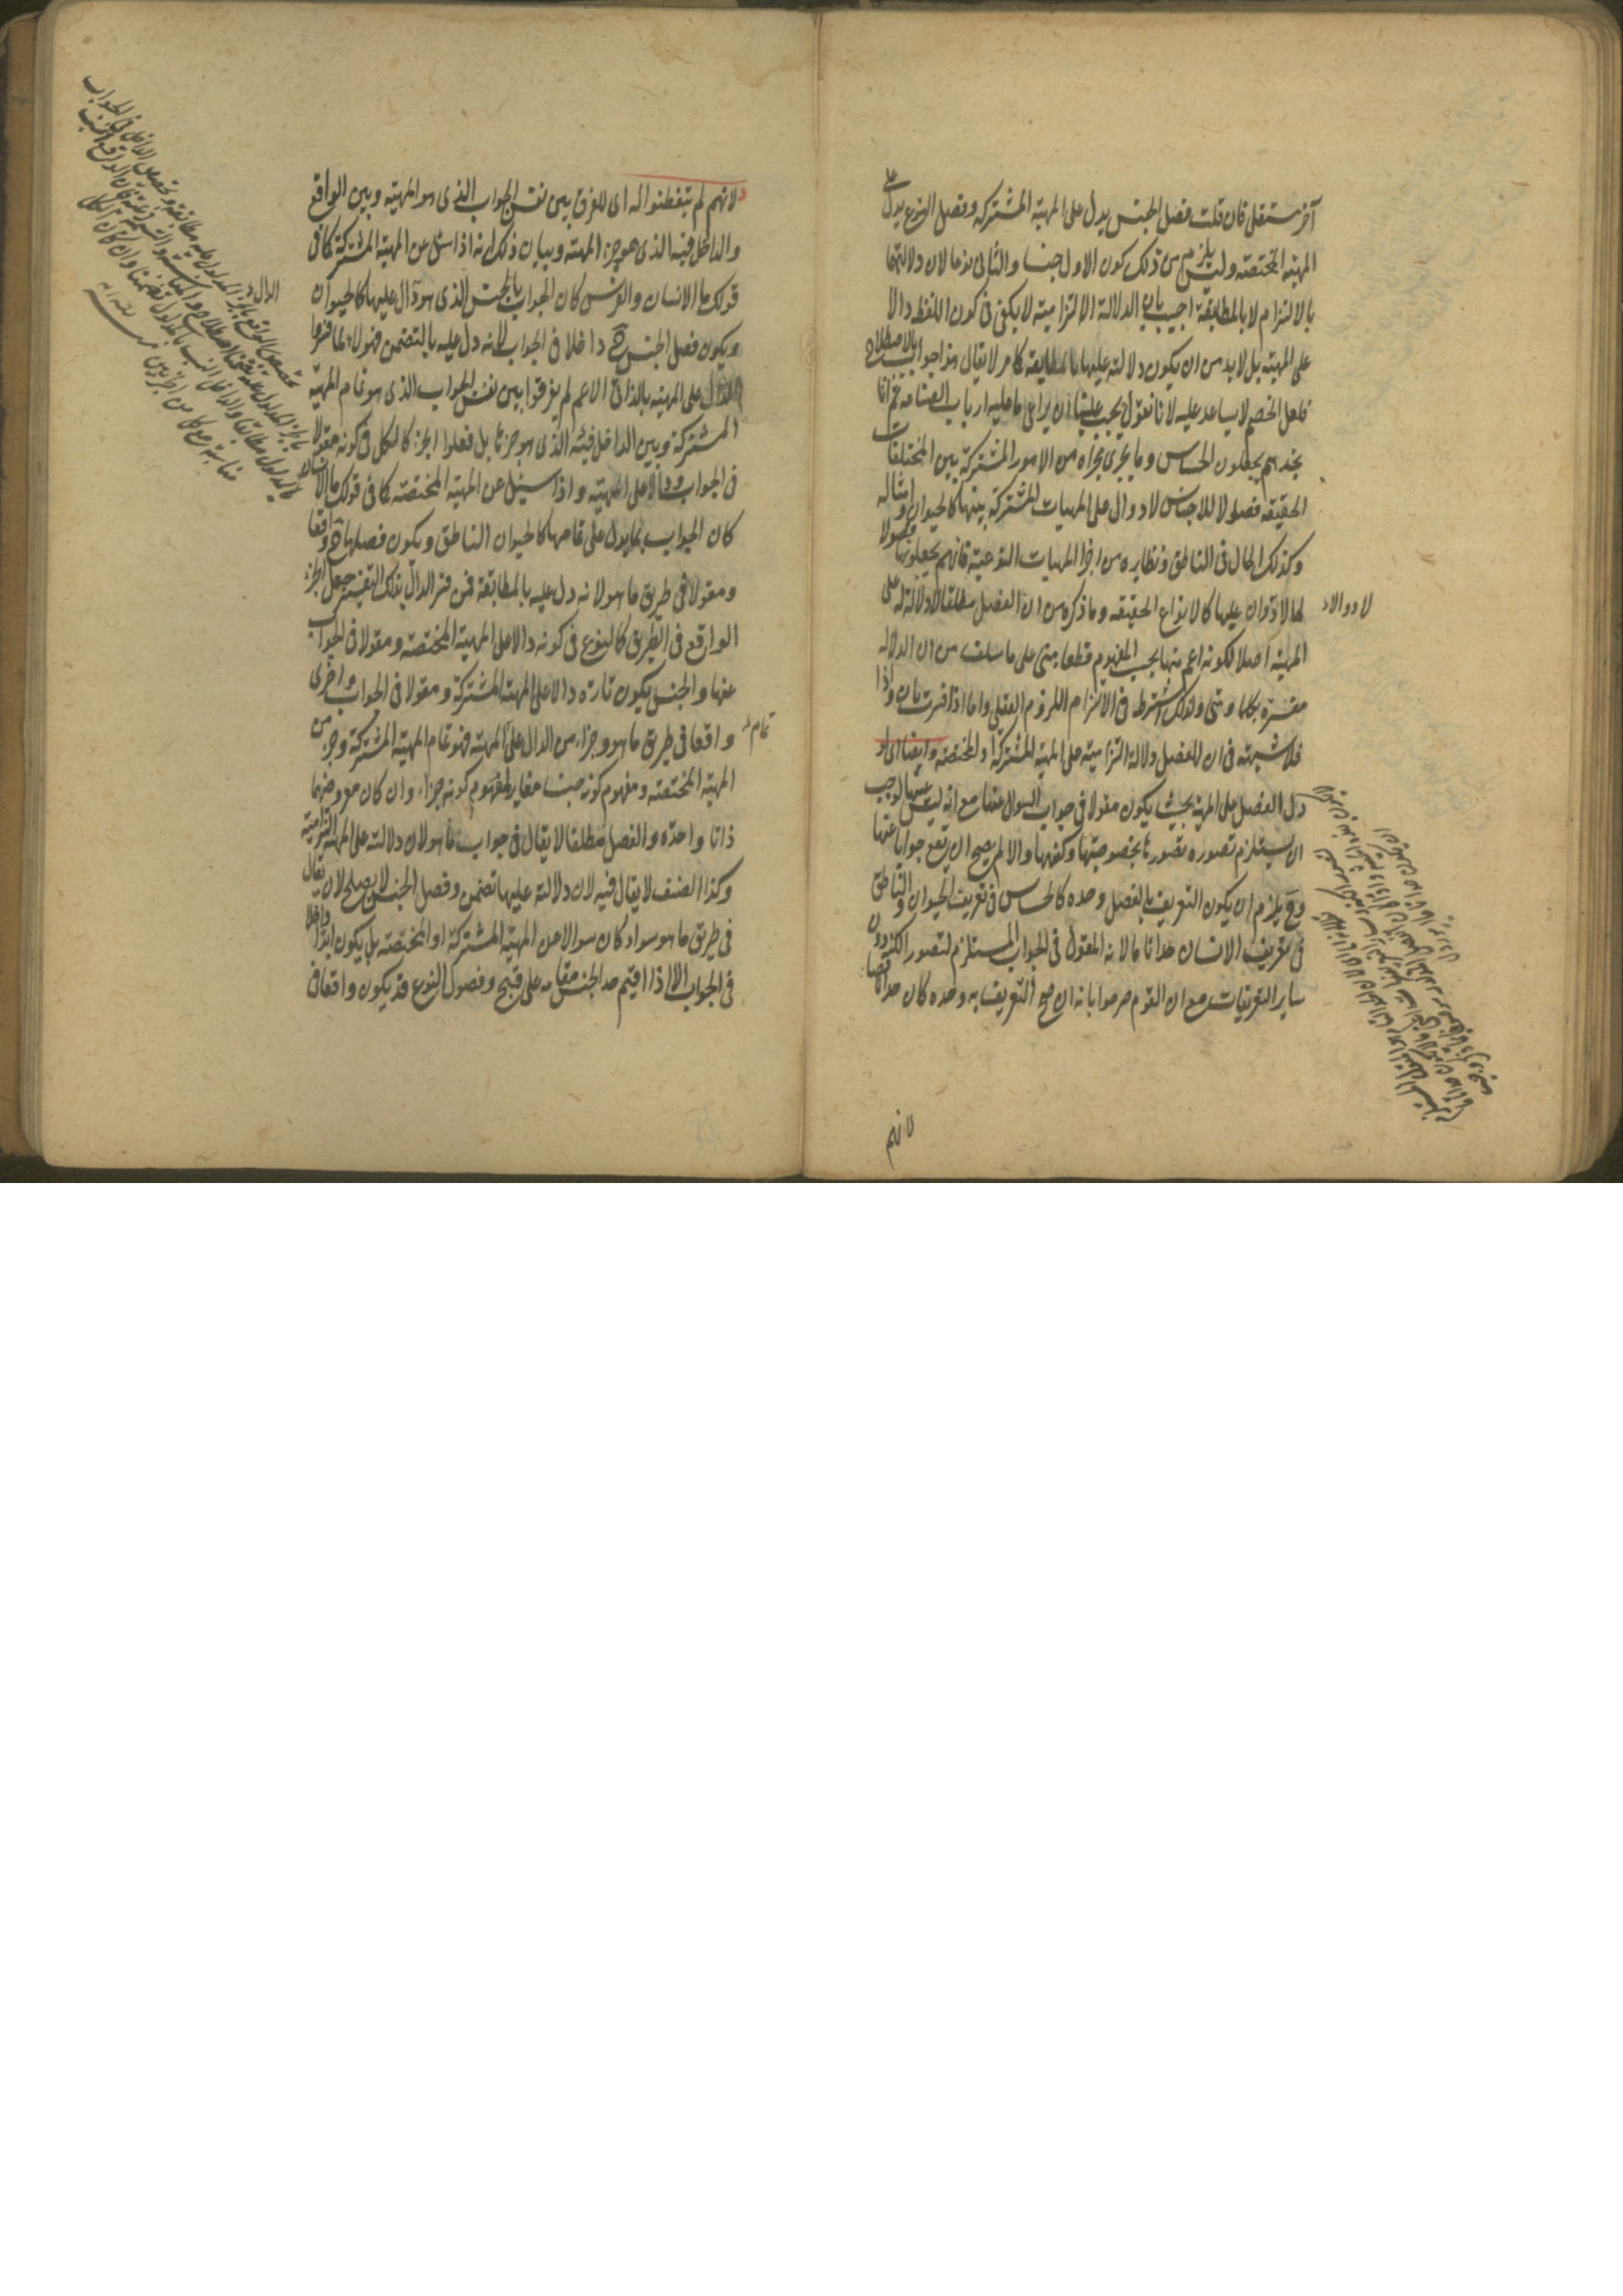 آخر مستقل فان قلت فصل الجنس يدل على المهية المشتركة وفصل النوع يدل على
المهية المختصة وليس يلزم من ذلك كون الاول جنسا والثاني نوعا لان دلالتهما
بالالتزام لا بالمطابقة اجيب بان الدلالة الالتزامية لا يكفي في كون اللفظ دالا
على المهية بل لا بد من ان يكون دلالته عليها بالمطابقة كما مر لا يقال هذا جواب بالاصطلاح
فلعل الخصم لا يساعد عليه لانا نقول يجب علينا ان يراعى ما عليه ارباب الصناعة ثم انا
نجدهم يجعلون الحساس وما يجرى مجراه من الامور المشتركة بين المختلفات
الحقيقة فصولا للاجناس لا دوال على المهيات المشتركة بينها كالحيوان وامثاله
وكذلك الحال في الناطق ونظايره من اجزا المهيات النوعية فانهم يجعلونها فصولا
لها لا دوال عليها كالانواع الحقيقة وما ذكره من ان الفصل مطلقا لا دلالة له على
لا دوالا
المهية اصلا لكونه اعم منها بحسب المفهوم قطعا مبنى على ما سلف من ان الدلالة
مفسرة بكلما ومتى ولذلك اشترط في الالتزام اللزوم العقلي واما اذا فسرت بان واذا
فلا شبهة في ان للفصل دلالة التزامية على المهية المشتركة او المختصة وايضا اى لو
دل الفصل على المهية بحيث يكون مقولا في جواب السوال عنها مع انه ليس عينها لوجب
ان يستلزم تصوره تصورها بخصوصيتها وكنهها والا لم يصح ان يقع جوابا عنها
وح يلزم ان يكون التعريف بالفصل وحده كالحساس في تعريف الحيوان والناطق
في تعريف الانسان حدا تاما لانه المقول في الجواب المستلزم لتصور الكنه دون
ساير التعريفات مع ان القوم صرحوا بانه ان صح التعريف به وحده كان حدا ناقصا
لانهم
لانهم لم يتفطنوا له اى للفرق بين نفس الجواب الذى هو المهية وبين الواقع
والداخل فيه الذى هو جزء المهية وبيان ذلك انه اذا سئل عن المهية المشتركة كما في
قولك ما الانسان والفرس كان الجواب بالجنس الذى هو دال عليها كالحيوان
ويكون فصل الجنس ح داخلا في الجواب لانه دل عليه بالتضمن فهولاء لما فسروا
الدال على المهية بالذاتى الاعم لم يفرقوا بين نفس الجواب الذى هو تمام المهية
المشتركة وبين الداخل فيه الذى هو جزئها بل فعلوا الجزء كالكل في كونه مقولا
في الجواب ودالا على المهية واذا سئل عن المهية المختصة كما في قولك ما الانسان
كان الجواب بما يدل على تمامها كالحيوان الناطق ويكون فصلها ح واقعا
ومقولا في طريق ما هو لانه دل عليه بالمطابقة فمن فسر الدال بذلك التفسير جعل الجزء
الواقع في الطريق كالنوع في كونه دالا على المهية المختصة ومقولا في الجواب
عنها والجنس يكون تارة دالا على المهية المشتركة ومقولا في الجواب واخرى
واقعا في طريق ما هو وجزاء من الدال على المهية فهو تمام المهية المشتركة وجزء من
تمام
المهية المختصة ومفهوم كونه جنسا مغاير لمفهوم كونه جزاء وان كان معروضهما
ذاتا واحدة والفصل مطلقا لا يقال في جواب ما هو لان دلالته على المهية التزامية
وكذا الصنف لا يقال فيه لان دلالته عليها تضمن وفصل الجنس لا يصلح لان يقال
في طريق ما هو سواء كان سوالا عن المهية المشتركة او المختصة بل يكون ابدا داخلا
في الجواب الا اذا اقيم حد الجنس مقامه على قبح وفصول النوع قد يكون واقعا في